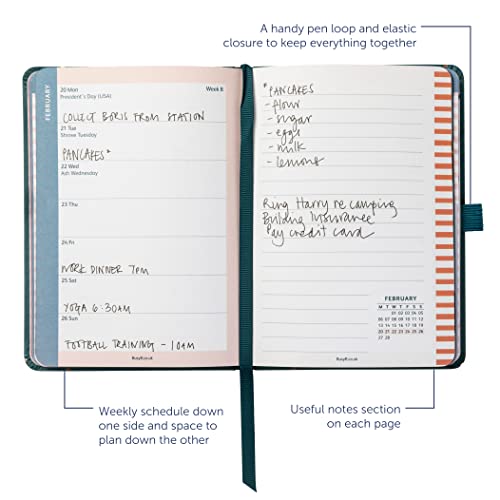 A handy pen loop and elastic
closure to keep everything together
FEBRUARY
20 Mon
Week 8
President's Day (USA)
COLLECT BORIS FROM STATION
21 Tue
Shrove Tuesday
PANCAKES*
22 Wed
Ash Wednesday
23 Thu
24 Fri
WORK DINNER 7PM
25 Sat
YOGA 6:30AM
26 Sun
FOOTBALL TRAINING - 10AM
BusyB.co.uk
*PANCAKES
- flour
- sugar
- eggs
- milk
- lemons
Ring Harry re camping
Building Insurance
Pay credit card
FEBRUARY
M T W T F S S
01 02 03 04 05
06 07 08 09 10 11 12
13 14 15 16 17 18 19
20 21 22 23 24 25 26
27 28
BusyB.co.uk
Weekly schedule down
one side and space to
plan down the other
Useful notes section
on each page